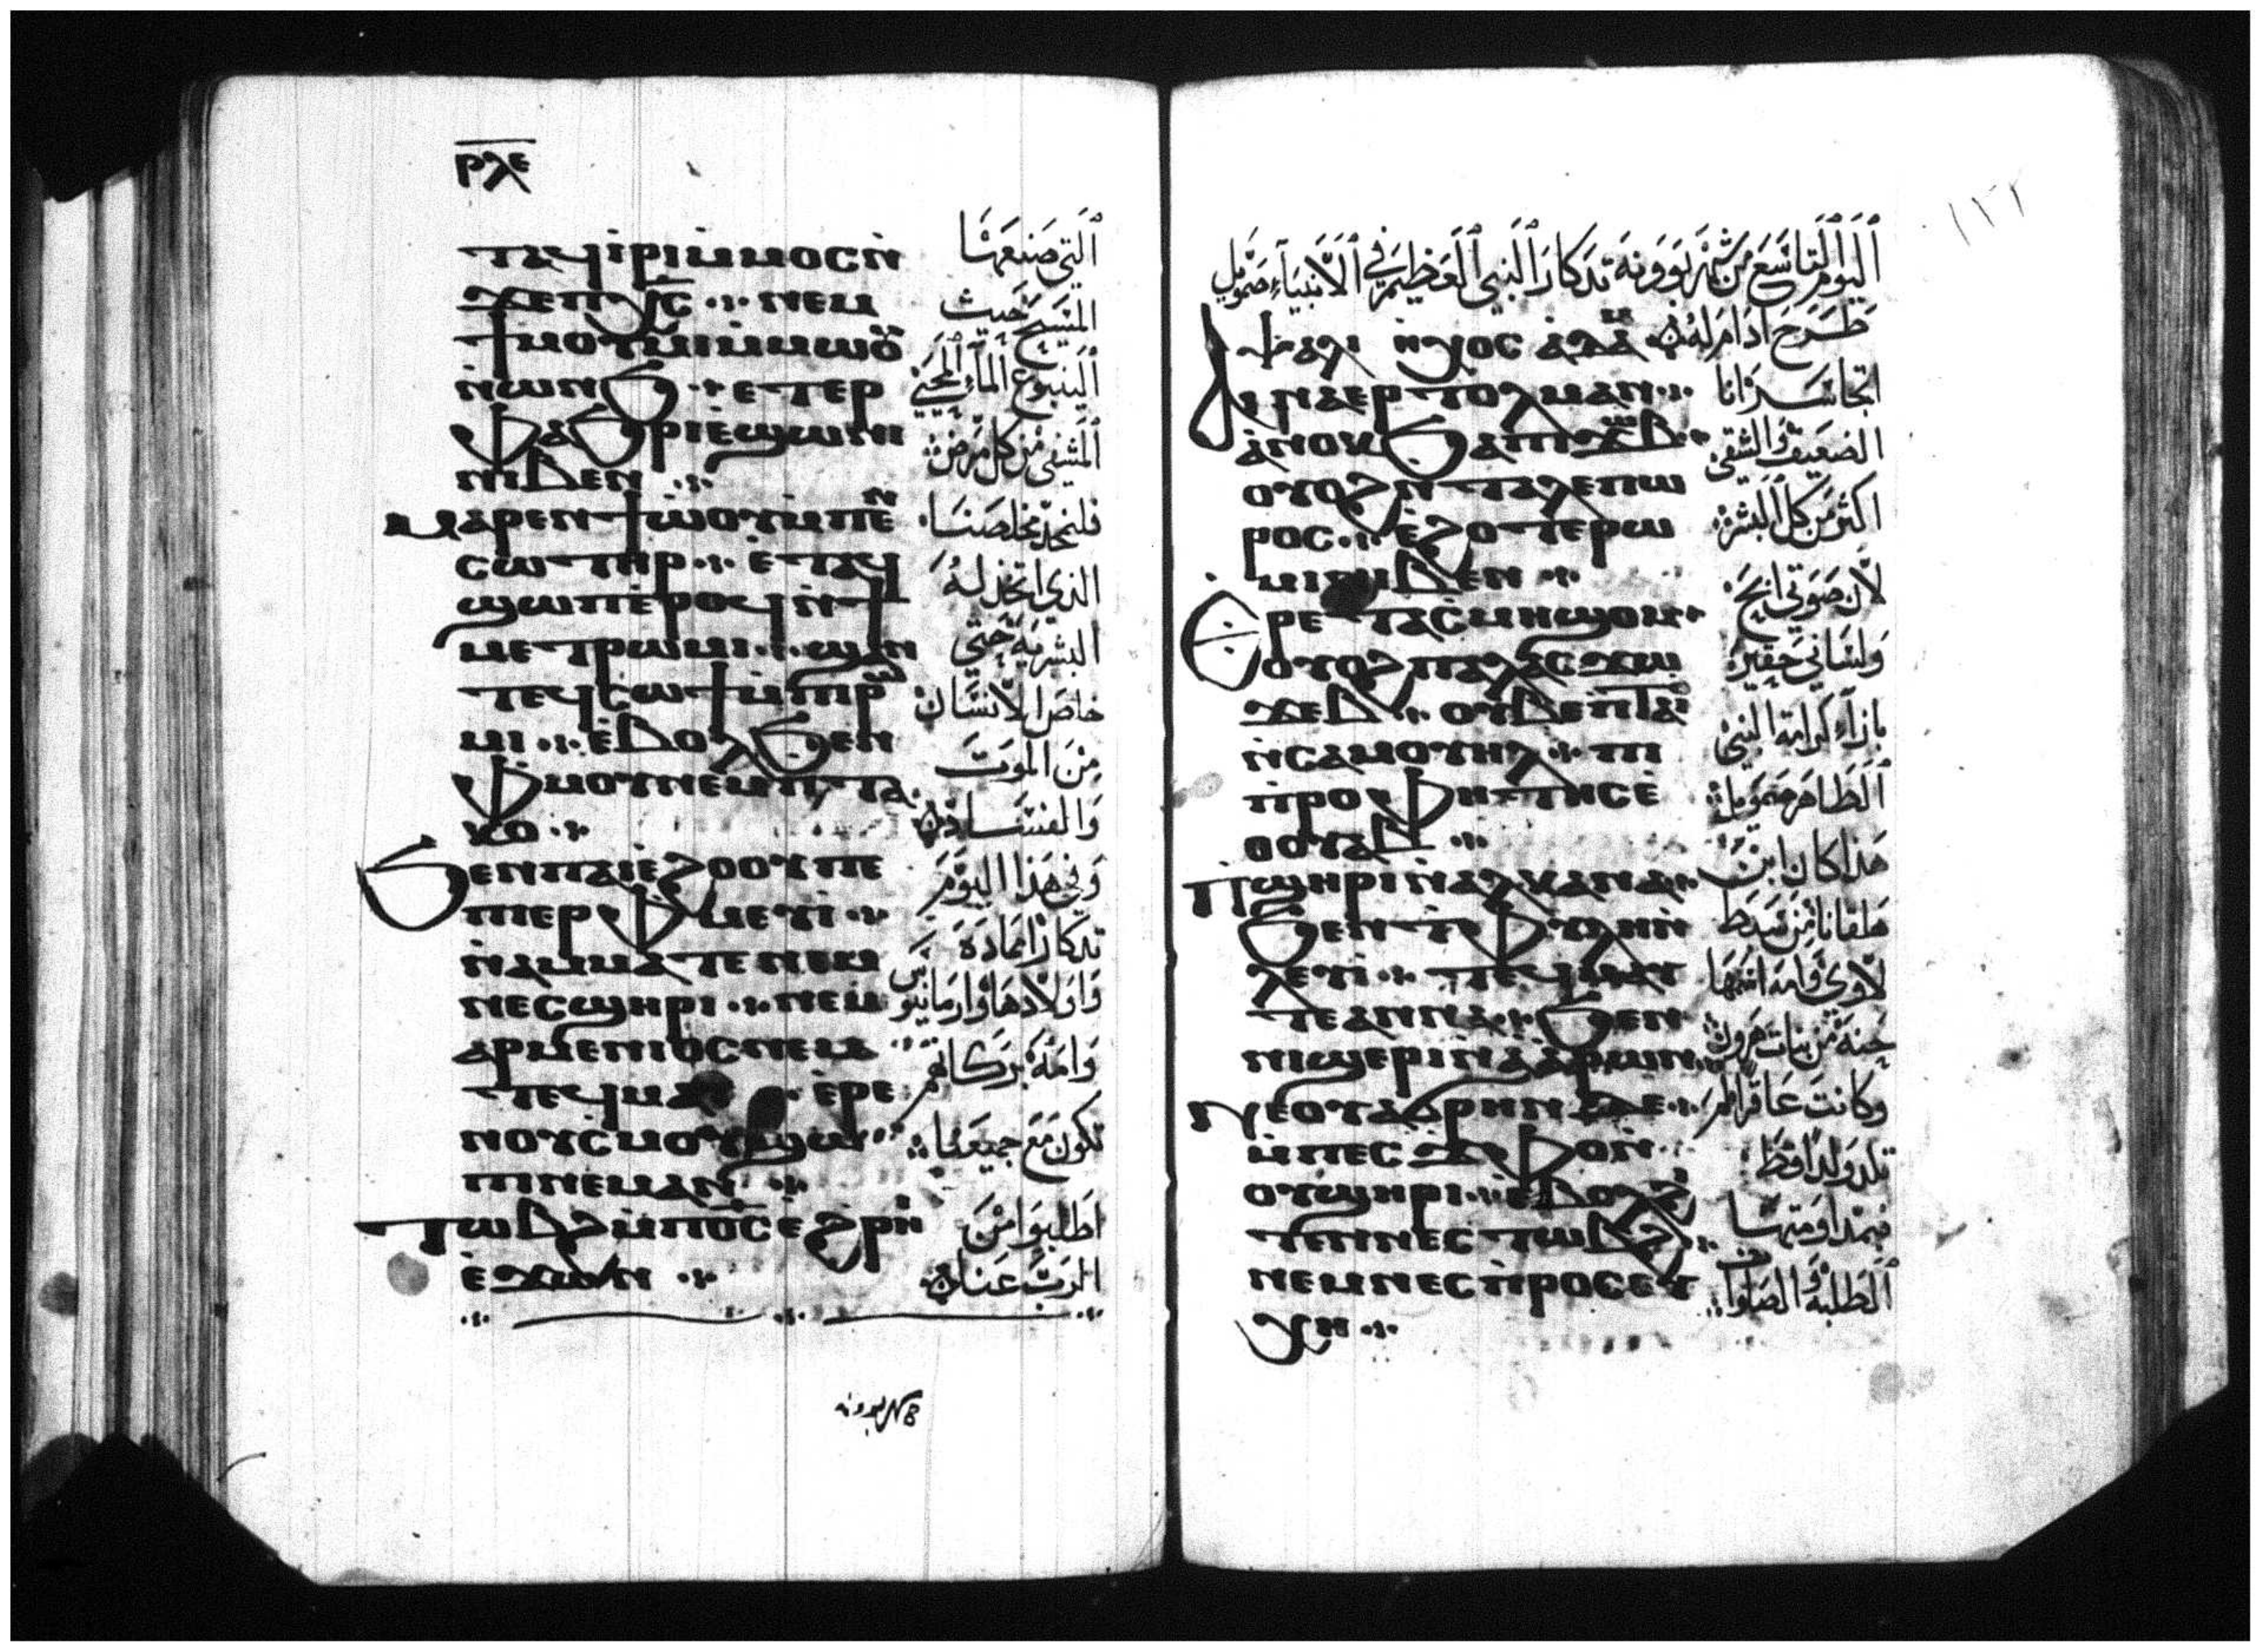 ⲣⲗⲉ
ⲧⲁϥⲓ̇ⲣⲓⲙ̇ⲙⲟⲥⲛ̇
ϫⲉⲡⲭ̅ⲥ̅ ⲛⲉⲙ
ϯⲙⲟⲩⲙⲓⲙ̇ⲙⲱⲟⲩ
ⲛ̇ⲱⲛϧ ⲉⲧⲉⲣ
ⲫⲁϧⲣⲓⲉ̇ϣⲱⲛⲓ
ⲛⲓⲃⲉⲛ
ⲙⲁⲣⲉⲛϯⲱⲟⲩⲙ̇ⲡⲉⲛ
ⲥⲱⲧⲏⲣ ⲉ̇ⲧⲁϥ
ϣⲱⲡⲉ̇ⲣⲟϥⲛ̇ϯ
ⲙⲉⲧⲣⲱⲙⲓ ϣⲁⲛ
ⲧⲉϥⲥⲱϯⲙ̇ⲡⲓⲣⲱ
ⲙⲓ ⲉ̇ⲃⲟⲗϧⲉⲛ
ⲫⲙⲟⲩⲛⲉⲙⲡ̇ⲧⲁ
ⲕⲟ
ϧⲉⲛⲡⲁⲓⲉ̇ϩⲟⲟⲩⲡⲉ
ⲡⲓⲉⲣⲫⲙⲉⲩⲓ̇
ⲛ̇ⲁⲙⲙⲁⲧⲉ ⲛⲉⲙ
ⲛⲉⲥϣⲏⲣⲓ ⲛⲉⲙ
ⲁⲣⲙⲉⲛⲓⲟⲥⲛⲉⲙ
ⲧⲉϥⲙⲁⲩ ⲉ̇ⲣⲉ
ⲛⲟⲩⲥ̇ⲙⲟⲩ ϣⲱ
ⲡⲓⲛⲉⲙⲁⲛ
ⲧⲱⲃϩⲙ̇ⲡⲟ̅ⲥ̅ ⲉϩⲣⲏⲓ
ⲉ̇ϫⲱⲛ
ٱلتي صنعها
المسيح حيث
ٱلينبوع الماء ٱلمحيي
ٱلمشفي من كل مرض
فلنمجد مخلصنا
الذي اتخذ له
البشرية حتي
خلص الانسان
من الموت
والفساد
وفي هذا اليوم
تدكار امادة
واولادها وارمانيوس
وامه بركاتهم
تكون مع جميعنا
اطلبوا من
الرب عنا
بوونه
١٣٦
ٱليوم ٱلتاسع من شهر بوونة تدكار ٱلنبي ٱلعظيم في ٱلانبياء صمويل
ⲯⲁⲗⲓ ⲏⲭⲟⲥ ⲁ̇ⲇⲁⲙ طرح ادام له
ϯⲛⲁⲉⲣⲧⲟⲗⲙⲁⲛ
ⲁ̇ⲛⲟⲕϧⲁⲡⲓϫⲱⲃ
ⲟⲩⲟϩⲛ̇ⲧⲁⲗⲉⲡⲱ
ⲣⲟⲥ ⲉ̇ϩⲟⲧⲉⲣⲱ
ⲙⲓⲛⲓⲃⲉⲛ
ⲉⲣⲉⲧⲁⲥ̇ⲙⲏϣⲟⲙ
ⲟⲩⲟϩⲡⲁⲗⲁⲥϫⲱ
ϫⲉⲃ ⲟⲩⲃⲉⲡ̇ⲧⲁⲓⲟ
ⲛ̇ⲥⲁⲙⲟⲩⲏⲗ ⲡⲓ
ⲡ̇ⲣⲟⲫⲏⲧⲏⲥⲉ̇
ⲑⲟⲩⲁⲃ
ⲡϣⲏⲣⲓⲛ̇ⲁⲗⲕⲁⲛⲁ
ϧⲉⲛⲧ̇ⲫⲩⲗⲏⲛ̇
ⲗⲉⲩⲓ ⲧⲉϥⲙⲁⲩ
ⲧⲉⲁⲛⲛⲁ ϧⲉⲛ
ⲛⲓϣⲉⲣⲓⲛ̇ⲁⲁⲣⲱⲛ
ⲛⲉⲟⲩⲁϭⲣⲏⲛ ⲇⲉ
ⲙ̇ⲡⲉⲥϫⲫⲟⲛ̇
ⲟⲩϣⲏⲣⲓ ⲉ̇ⲃⲟⲗϩⲓ
ⲧⲉⲛⲛⲉⲥⲧⲱⲃϩ
ⲛⲉⲙⲛⲉⲥⲡ̇ⲣⲟⲥⲉⲩ
ⲭⲏ
اتجاسر انا
الضعيف والشقي
اكثر من كل ٱلبشر
لان صوتي ابح
ولساني حقير
بازاء كرامة النبي
ٱلطاهر صمويل
هذا كان ابن
هلقانا من سبط
لاوي وامه اسمها
حنة من بنات هرون
وكانت عاقرا لم
تلد ولدا قط
فبمداومتها
ٱلطلبة والصلوات